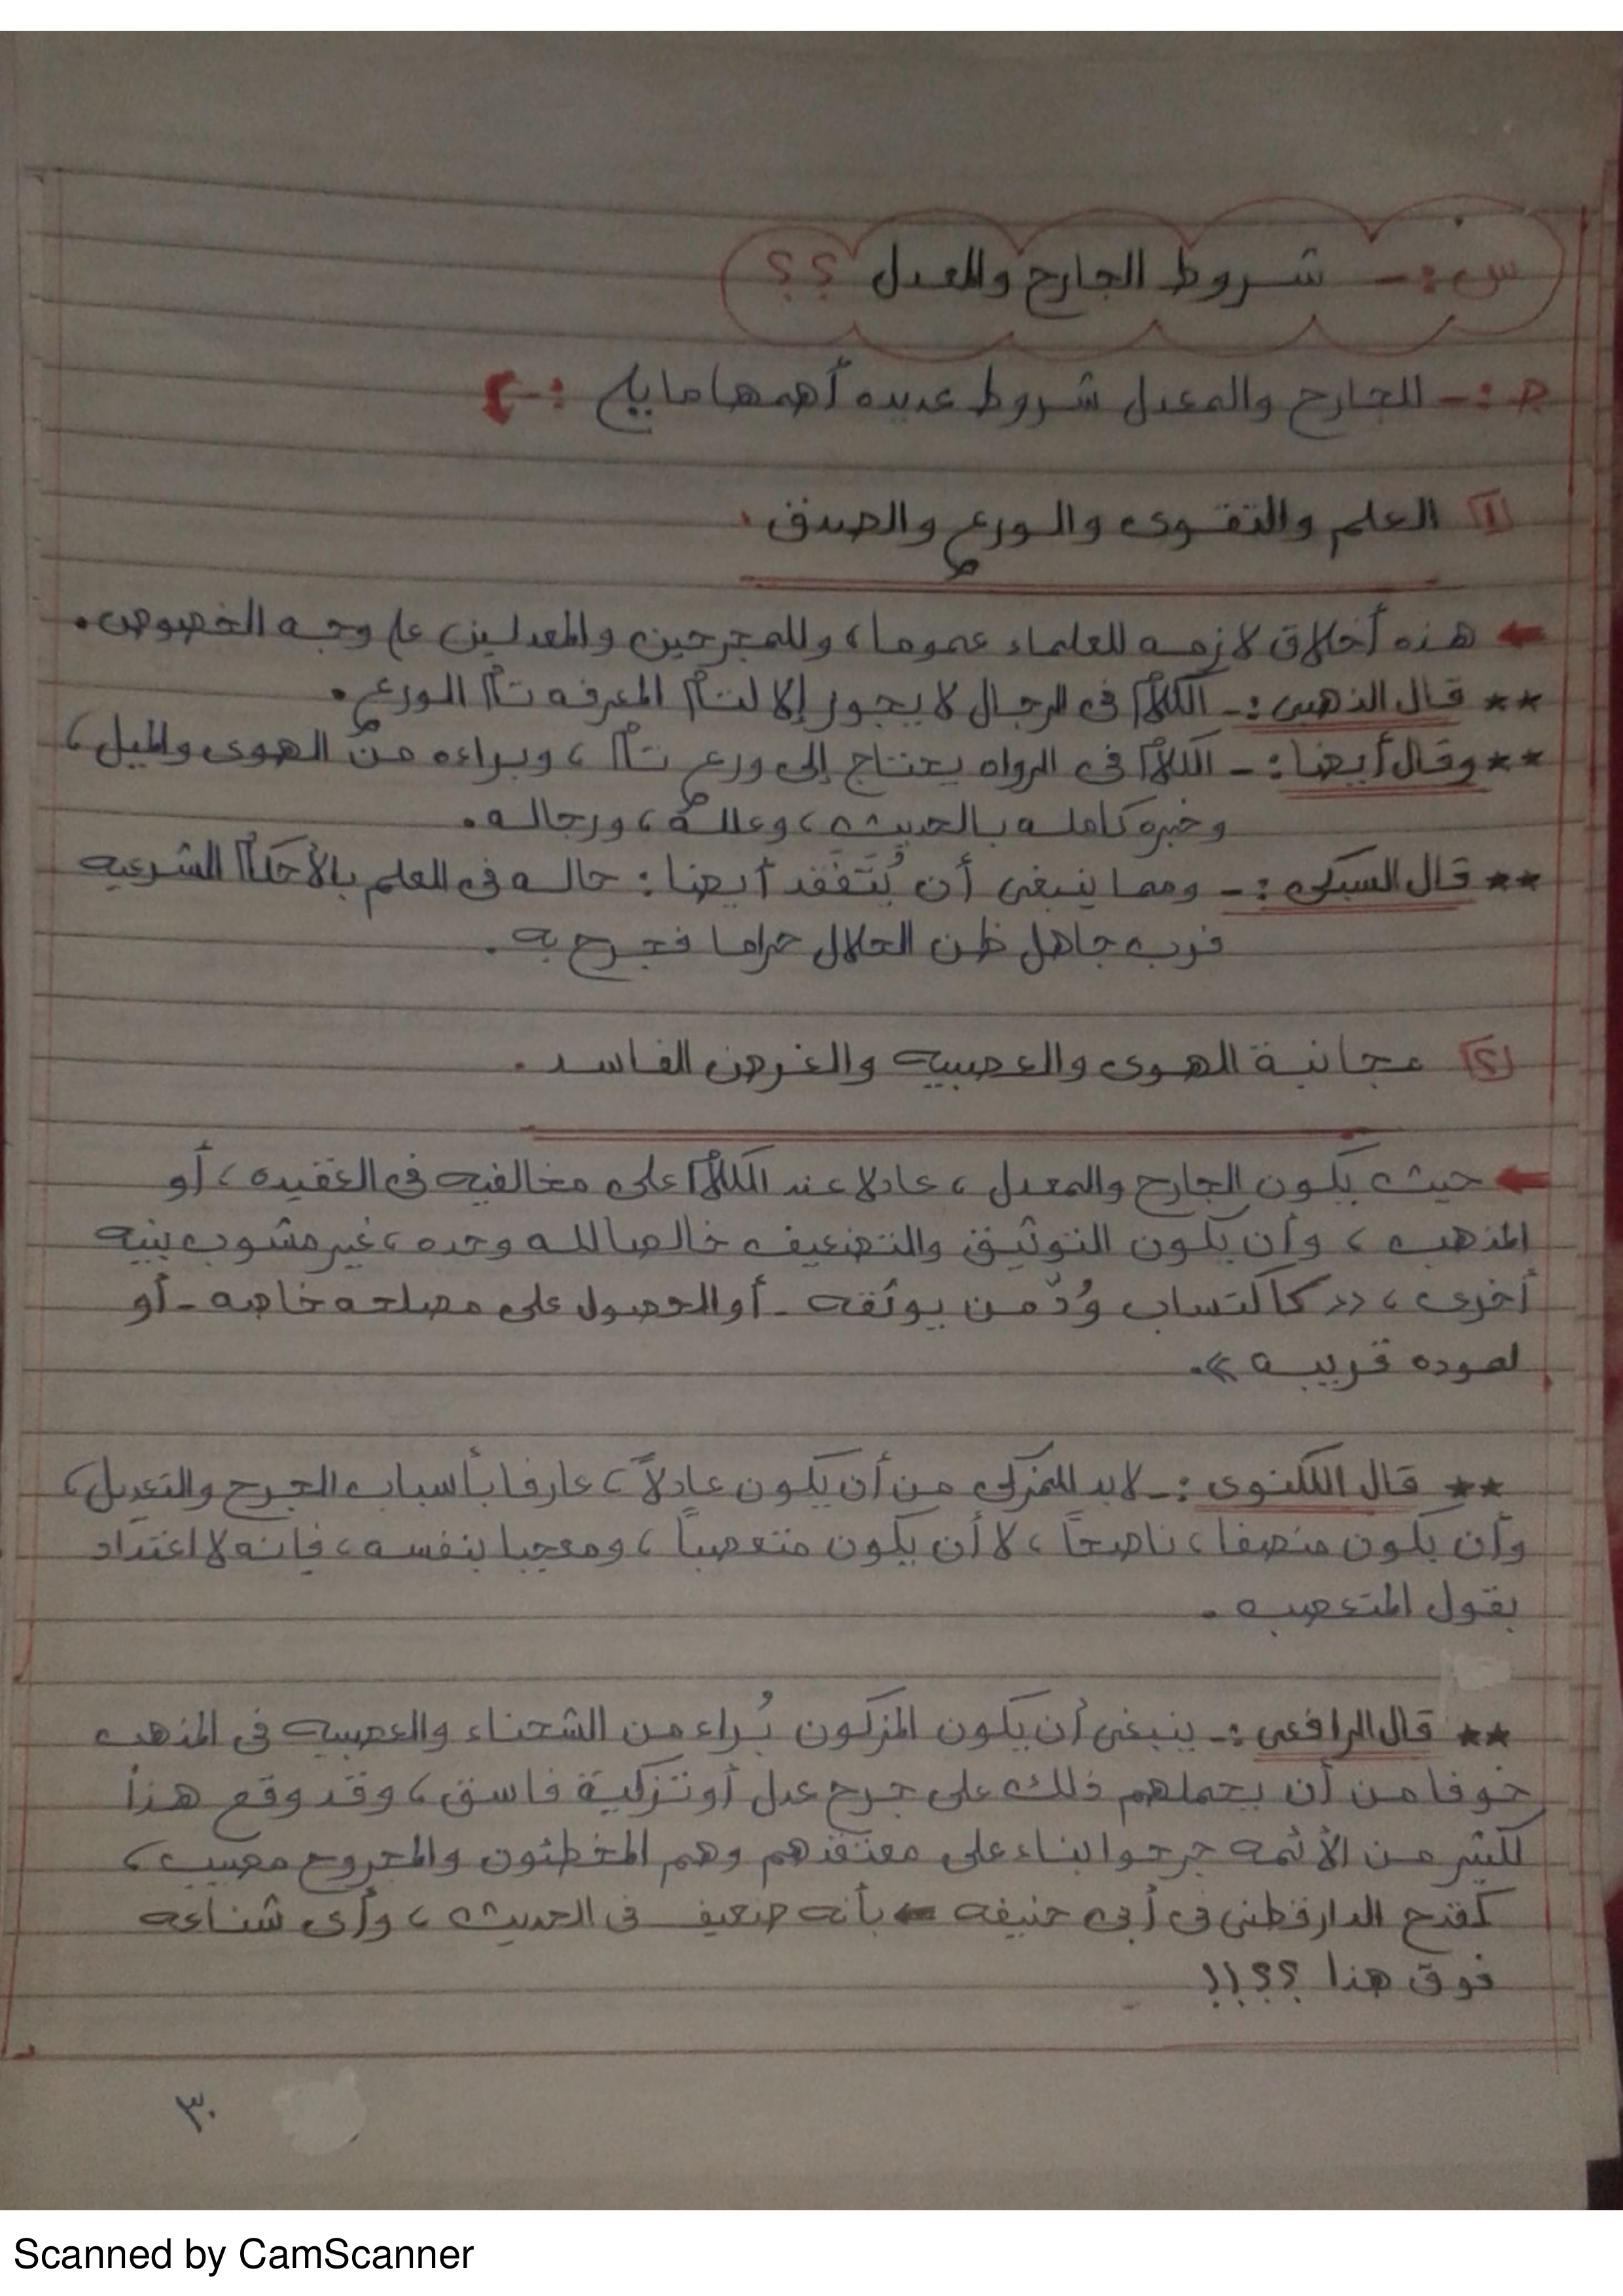 س :- شروط الجارح والمعدل ؟؟
ج :- للجارح والمعدل شروط عديده أهمها ما يلي :-
١ العلم والتقوى والورع والصدق .
هذه أخلاق لازمه للعلماء عموما، وللمجرحين والمعدلين على وجه الخصوص .
** قال الذهبى :- الكلام فى الرجال لا يجوز إلا لتام المعرفه تام الورع .
** وقال أيضا :- الكلام فى الرواه يحتاج إلى ورع تام ، وبراءه من الهوى والميل ،
وخبره كامله بالحديث ، وعلله ، ورجاله .
** قال السبكى :- ومما ينبغى أن يُتَفَقد أيضا : حاله فى العلم بالأحكام الشرعيه
فرب جاهل ظن الحلال حراما فجرح به .
٢ مجانبة الهوى والعصبيه والغرض الفاسد .
حيث يكون الجارح والمعدل ، عادلا عند الكلام على مخالفيه فى العقيده ، أو
المذهب ، وأن يكون التوثيق والتضعيف خالصا لله وحده ، غير مشوب بنيه
أخرى ، << كاكتساب وُدّ من يوثقه - أو الحصول على مصلحه خاصه - أو
لموده قريبه >> .
** قال اللكنوى :- لابد للمزكى من أن يكون عادلاً ، عارفا بأسباب الجرح والتعديل ،
وأن يكون منصفا ، ناصحاً ، لا أن يكون متعصباً ، ومعجبا بنفسه ، فإنه لا اعتداد
بقول المتعصب .
** قال الرافعى :- ينبغى أن يكون المزكون بُراء من الشحناء والعصبيه فى المذهب
خوفا من أن يحملهم ذلك على جرح عدل أو تزكية فاسق ، وقد وقع هذا
لكثير من الأئمه جرحوا بناء على معتقدهم وهم المخطئون والمجروح مصيب ،
كقدح الدارقطنى فى أبى حنيفه ← بأنه ضعيف فى الحديث ، وأى شناعه
فوق هذا ؟؟!!
٣٠
Scanned by CamScanner